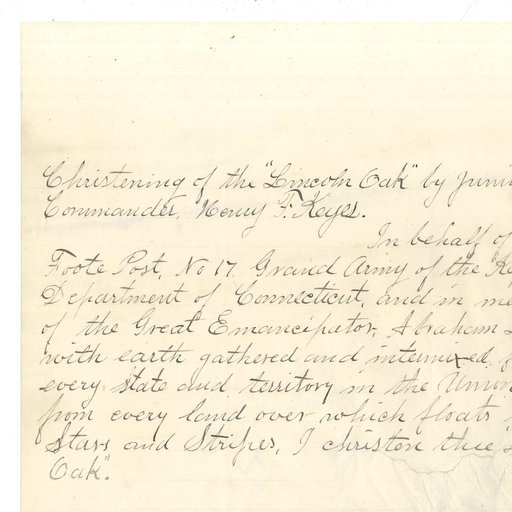 Christening of the "Lincoln Oak" by Juni
Commander, Henry F. Keyes.
In behalf of
Foote Post, No 17, Grand Army of the Re
Department of Connecticut, and in me
of the Great Emancipator, Abraham
with earth gathered and intermixed, f
every state and territory in the Union
from every land over which floats
Stars and Stripes, I christen thee
Oak".